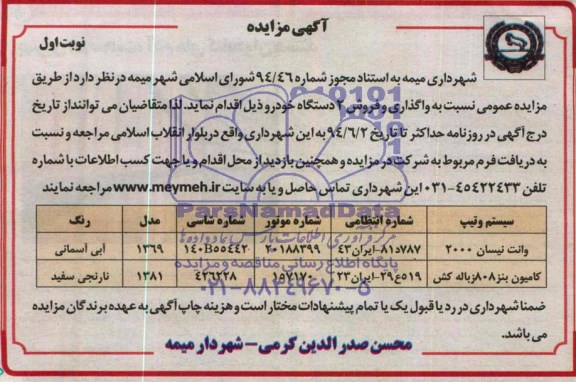 آگهی مزایده
نوبت اول
شهرداری میمه به استناد مجوز شماره ۹۴/۴۶ شورای اسلامی شهر میمه در نظر دارد از طریق
مزایده عمومی نسبت به واگذاری و فروش ۲ دستگاه خودرو ذیل اقدام نماید. لذا متقاضیان می توانند از تاریخ
درج آگهی در روزنامه حداکثر تا تاریخ ۹۴/۶/۲ به این شهرداری واقع در بلوار انقلاب اسلامی مراجعه و نسبت
به دریافت فرم مربوط به شرکت در مزایده و همچنین بازدید از محل اقدام و یا جهت کسب اطلاعات با شماره
تلفن ۴۵۴۲۲۴۳۳-۰۳۱ این شهرداری تماس حاصل و یا به سایت www.meymeh.ir مراجعه نمایند
سیستم وتیپ شماره انتظامی شماره موتور شماره شاسی مدل رنگ
وانت نیسان ۲۰۰۰ ۷۸۷د۸۱-ایران۴۳ ۲۰۱۸۸۳۹۹ ۱۴۰B۰۰۵۴۴۲ ۱۳۶۹ آبی آسمانی
کامیون بنز۸۰۸زباله کش ۵۱۹ع۲۹-ایران۲۳ ۱۵۷۱۷۰ ۴۲۶۲۲۸ ۱۳۸۱ نارنجی سفید
ParsNamadData
پایگاه اطلاع رسانی مناقصه و مزایده
۰۲۱-۸۸۳۴۹۶۷۰-۵
ضمنا شهرداری در رد یا قبول یک یا تمام پیشنهادات مختار است و هزینه چاپ آگهی به عهده برندگان مزایده
می باشد.
محسن صدرالدین کرمی - شهردار میمه